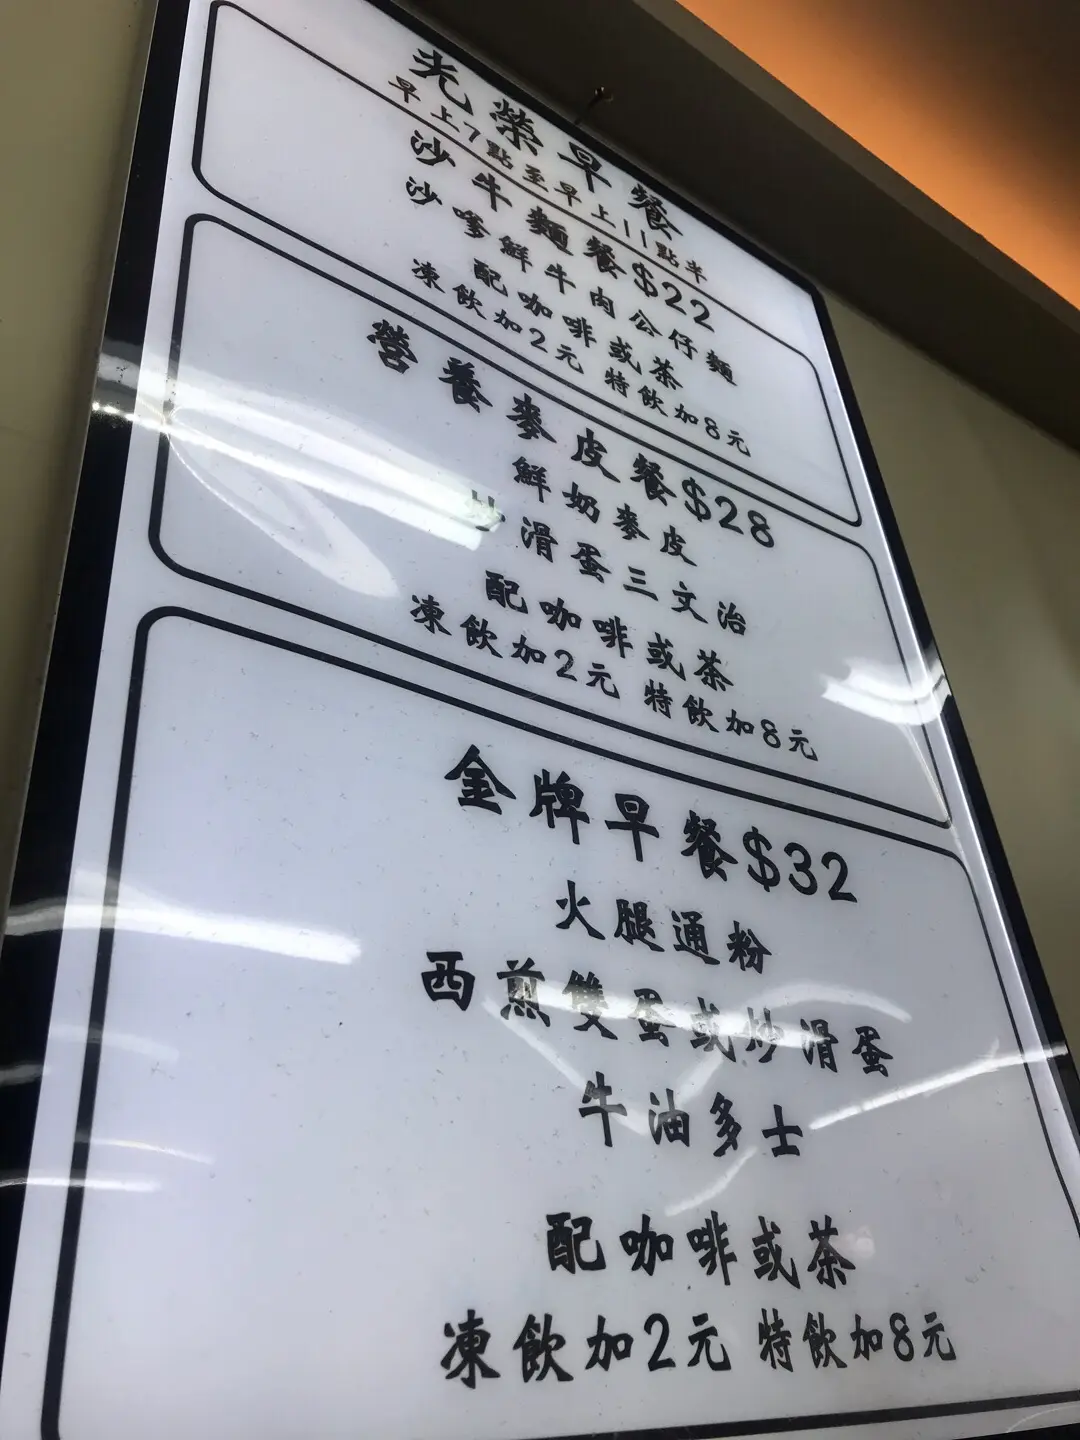 光榮早餐
早上7點至早上11點半
沙牛麵餐$22
沙嗲鮮牛肉公仔麵
配咖啡或茶
凍飲加2元 特飲加8元
營養麥皮餐$28
鮮奶麥皮
炒滑蛋三文治
配咖啡或茶
凍飲加2元 特飲加8元
金牌早餐$32
火腿通粉
西煎雙蛋或炒滑蛋
牛油多士
配咖啡或茶
凍飲加2元 特飲加8元